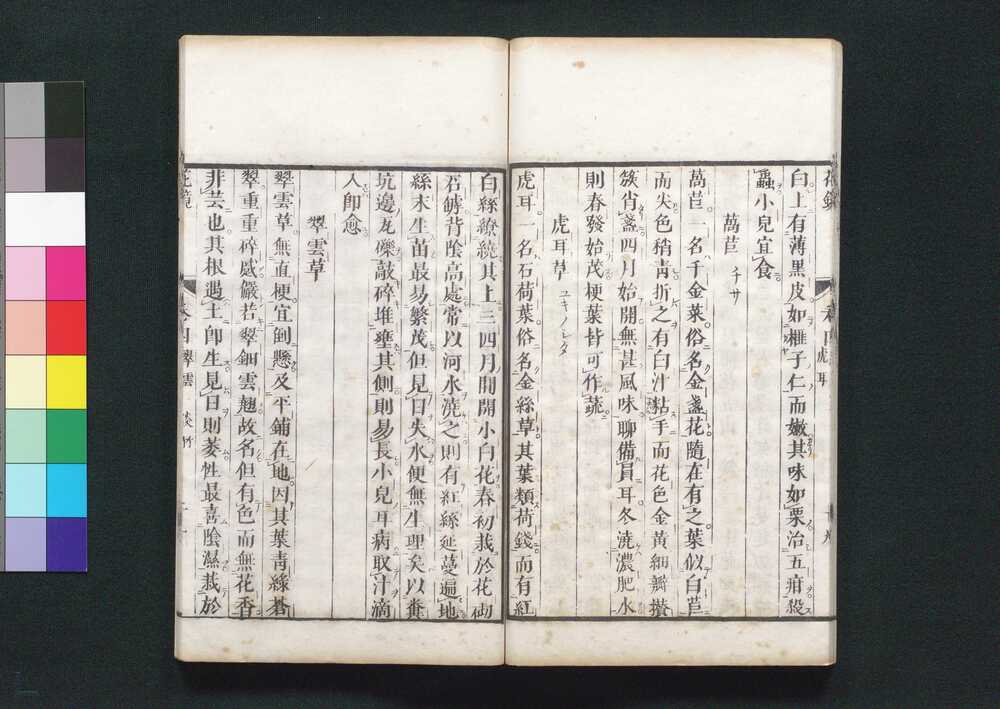 花鏡 卷四 虎耳
白上有薄黑皮如榧子仁而嫩其味如栗治五疳殺
蟲小兒宜食
萵苣 チサ
萵苣一名千金菜俗名金盞花隨在有之葉似白苣
而尖色稍青折之有白汁粘手而花色金黃細瓣攢
簇肖盞四月始開無甚風味聊備員耳冬澆濃肥水
則春發始茂梗葉皆可作蔬
虎耳草 ユキノシタ
虎耳一名石荷葉俗名金絲草其葉類荷錢而有紅
白絲繚繞其上三四月間開小白花春初栽於花砌
石罅背陰高處常以河水澆之則有紅絲延蔓遍地
絲末生苗最易繁茂但見日失水便無生理矣以糞
坑邊瓦礫敲碎堆壅其側則易長小兒耳病取汁滴
入即愈
翠雲草
翠雲草無直梗宜倒懸及平鋪在地因其葉青綠蒼
翠重重碎蹙儼若翠鈿雲翹故名但有色而無花香
非芸也其根遇土即生見日則萎性最喜陰濕栽於
花鏡 卷四 翠雲 淡竹